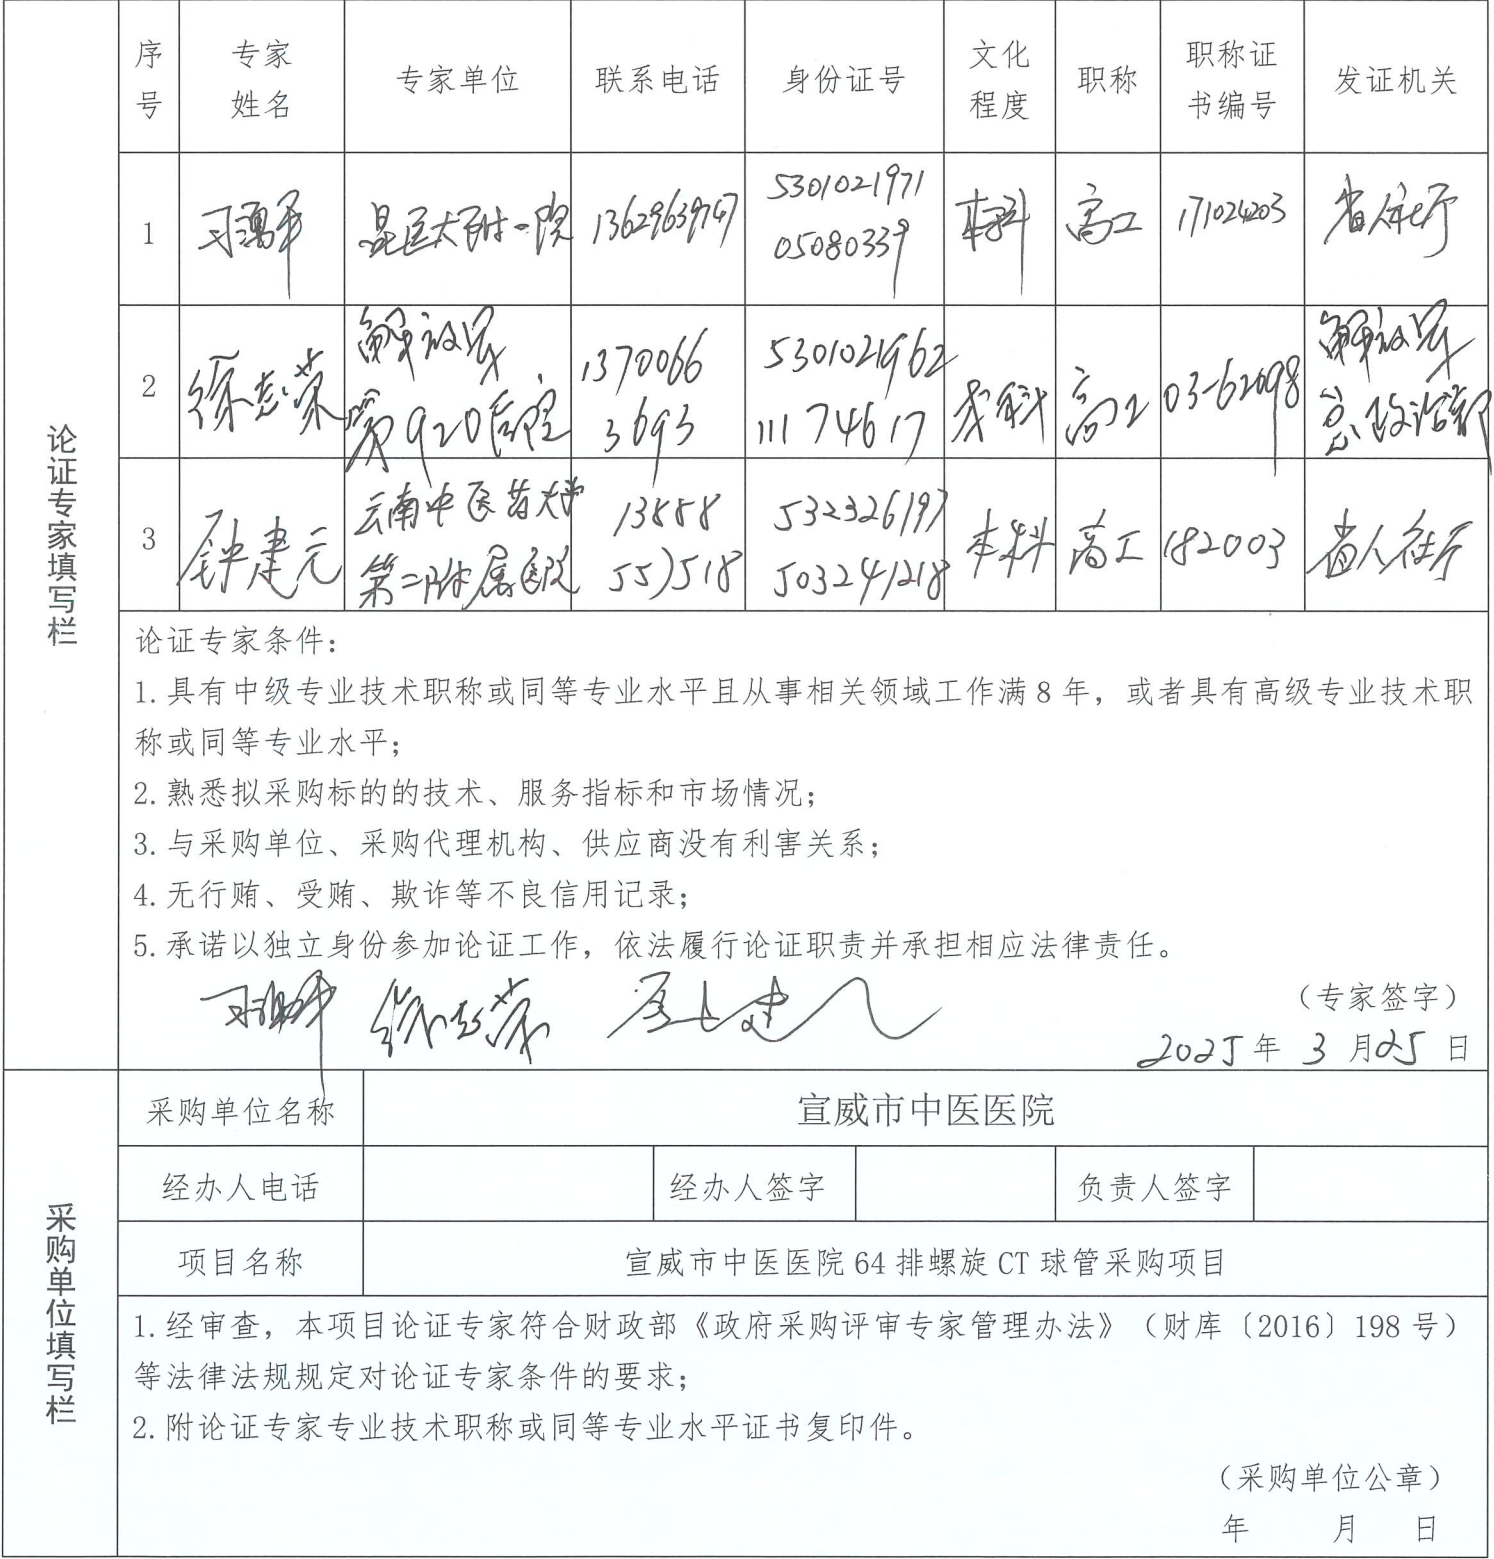 论证专家填写栏
序号 专家姓名 专家单位 联系电话 身份证号 文化程度 职称 职称证书编号 发证机关
1 昆医大附一院 13629639747 530102197105080339 本科 高工 171024203 省人社厅
2 徐志荣 解放军第920医院 13700663693 530102196211174617 本科 高工 03-62698 解放军总政治部
3 钟建元 云南中医药大学第二附属医院 13888557518 532326197503241218 本科 高工 182003 省人社厅
论证专家条件：
1.具有中级专业技术职称或同等专业水平且从事相关领域工作满8年，或者具有高级专业技术职
称或同等专业水平；
2.熟悉拟采购标的的技术、服务指标和市场情况；
3.与采购单位、采购代理机构、供应商没有利害关系；
4.无行贿、受贿、欺诈等不良信用记录；
5.承诺以独立身份参加论证工作，依法履行论证职责并承担相应法律责任。
徐志荣
（专家签字）
2025年 3 月25 日
采购单位填写栏
采购单位名称 宣威市中医医院
经办人电话 经办人签字 负责人签字
项目名称 宣威市中医医院64排螺旋CT球管采购项目
1.经审查，本项目论证专家符合财政部《政府采购评审专家管理办法》（财库〔2016〕198号）
等法律法规规定对论证专家条件的要求；
2.附论证专家专业技术职称或同等专业水平证书复印件。
（采购单位公章）
年 月 日